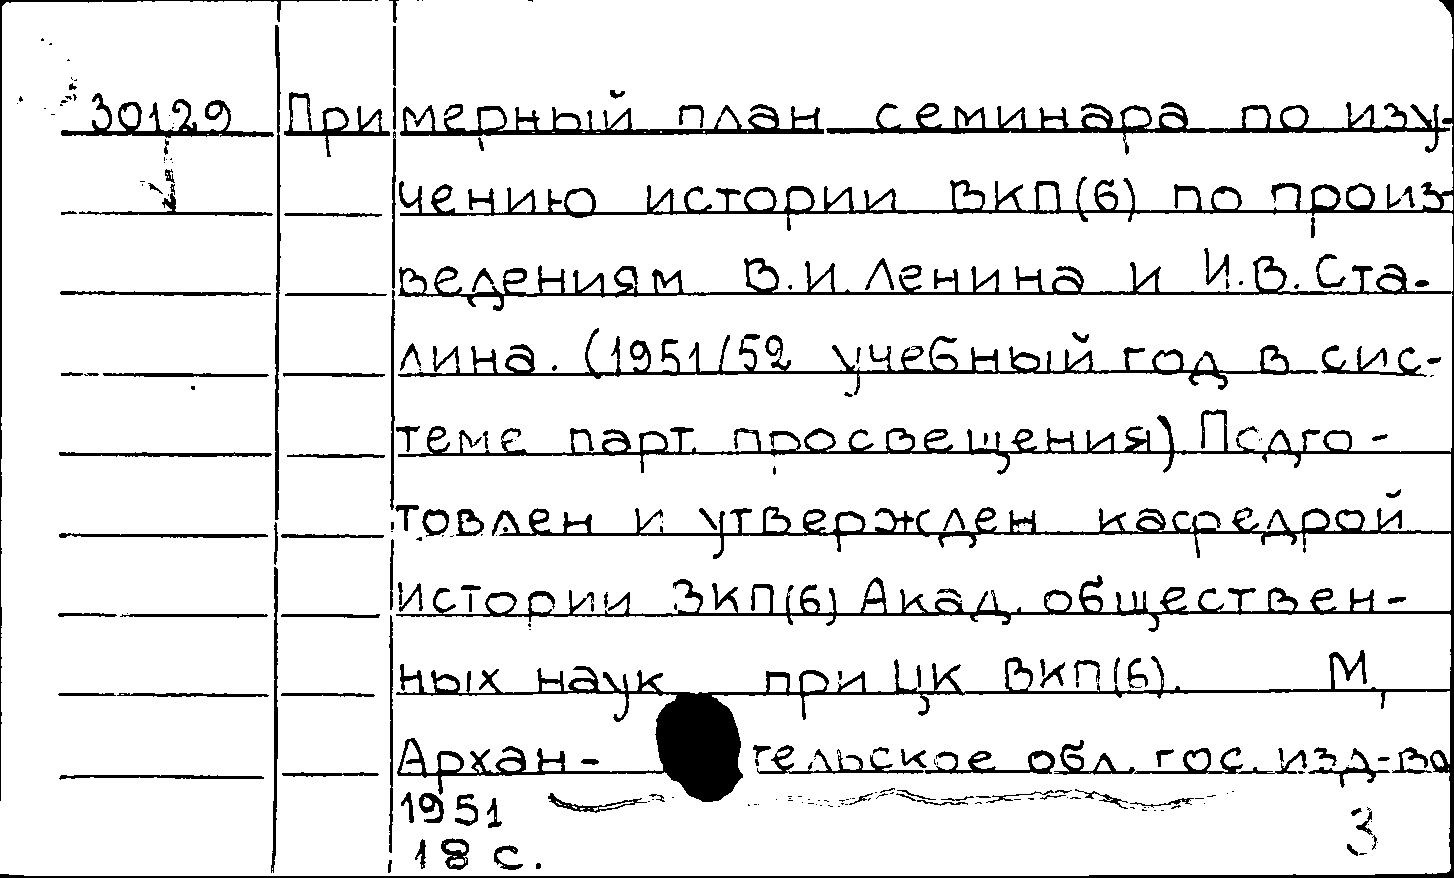 30129 Примерный план семинара по изу-
чению истории ВКП(б) по произ-
ведениям В.И. Ленина и И.В. Ста-
лина. (1951/52 учебный год в сис-
теме парт. просвещения) Подго-
товлен и утвержден кафедрой
истории ВКП(б) Акад. обществен-
ных наук при ЦК ВКП(б). М.,
Архан- гельское обл. гос. изд-во
1951
18 с.
3